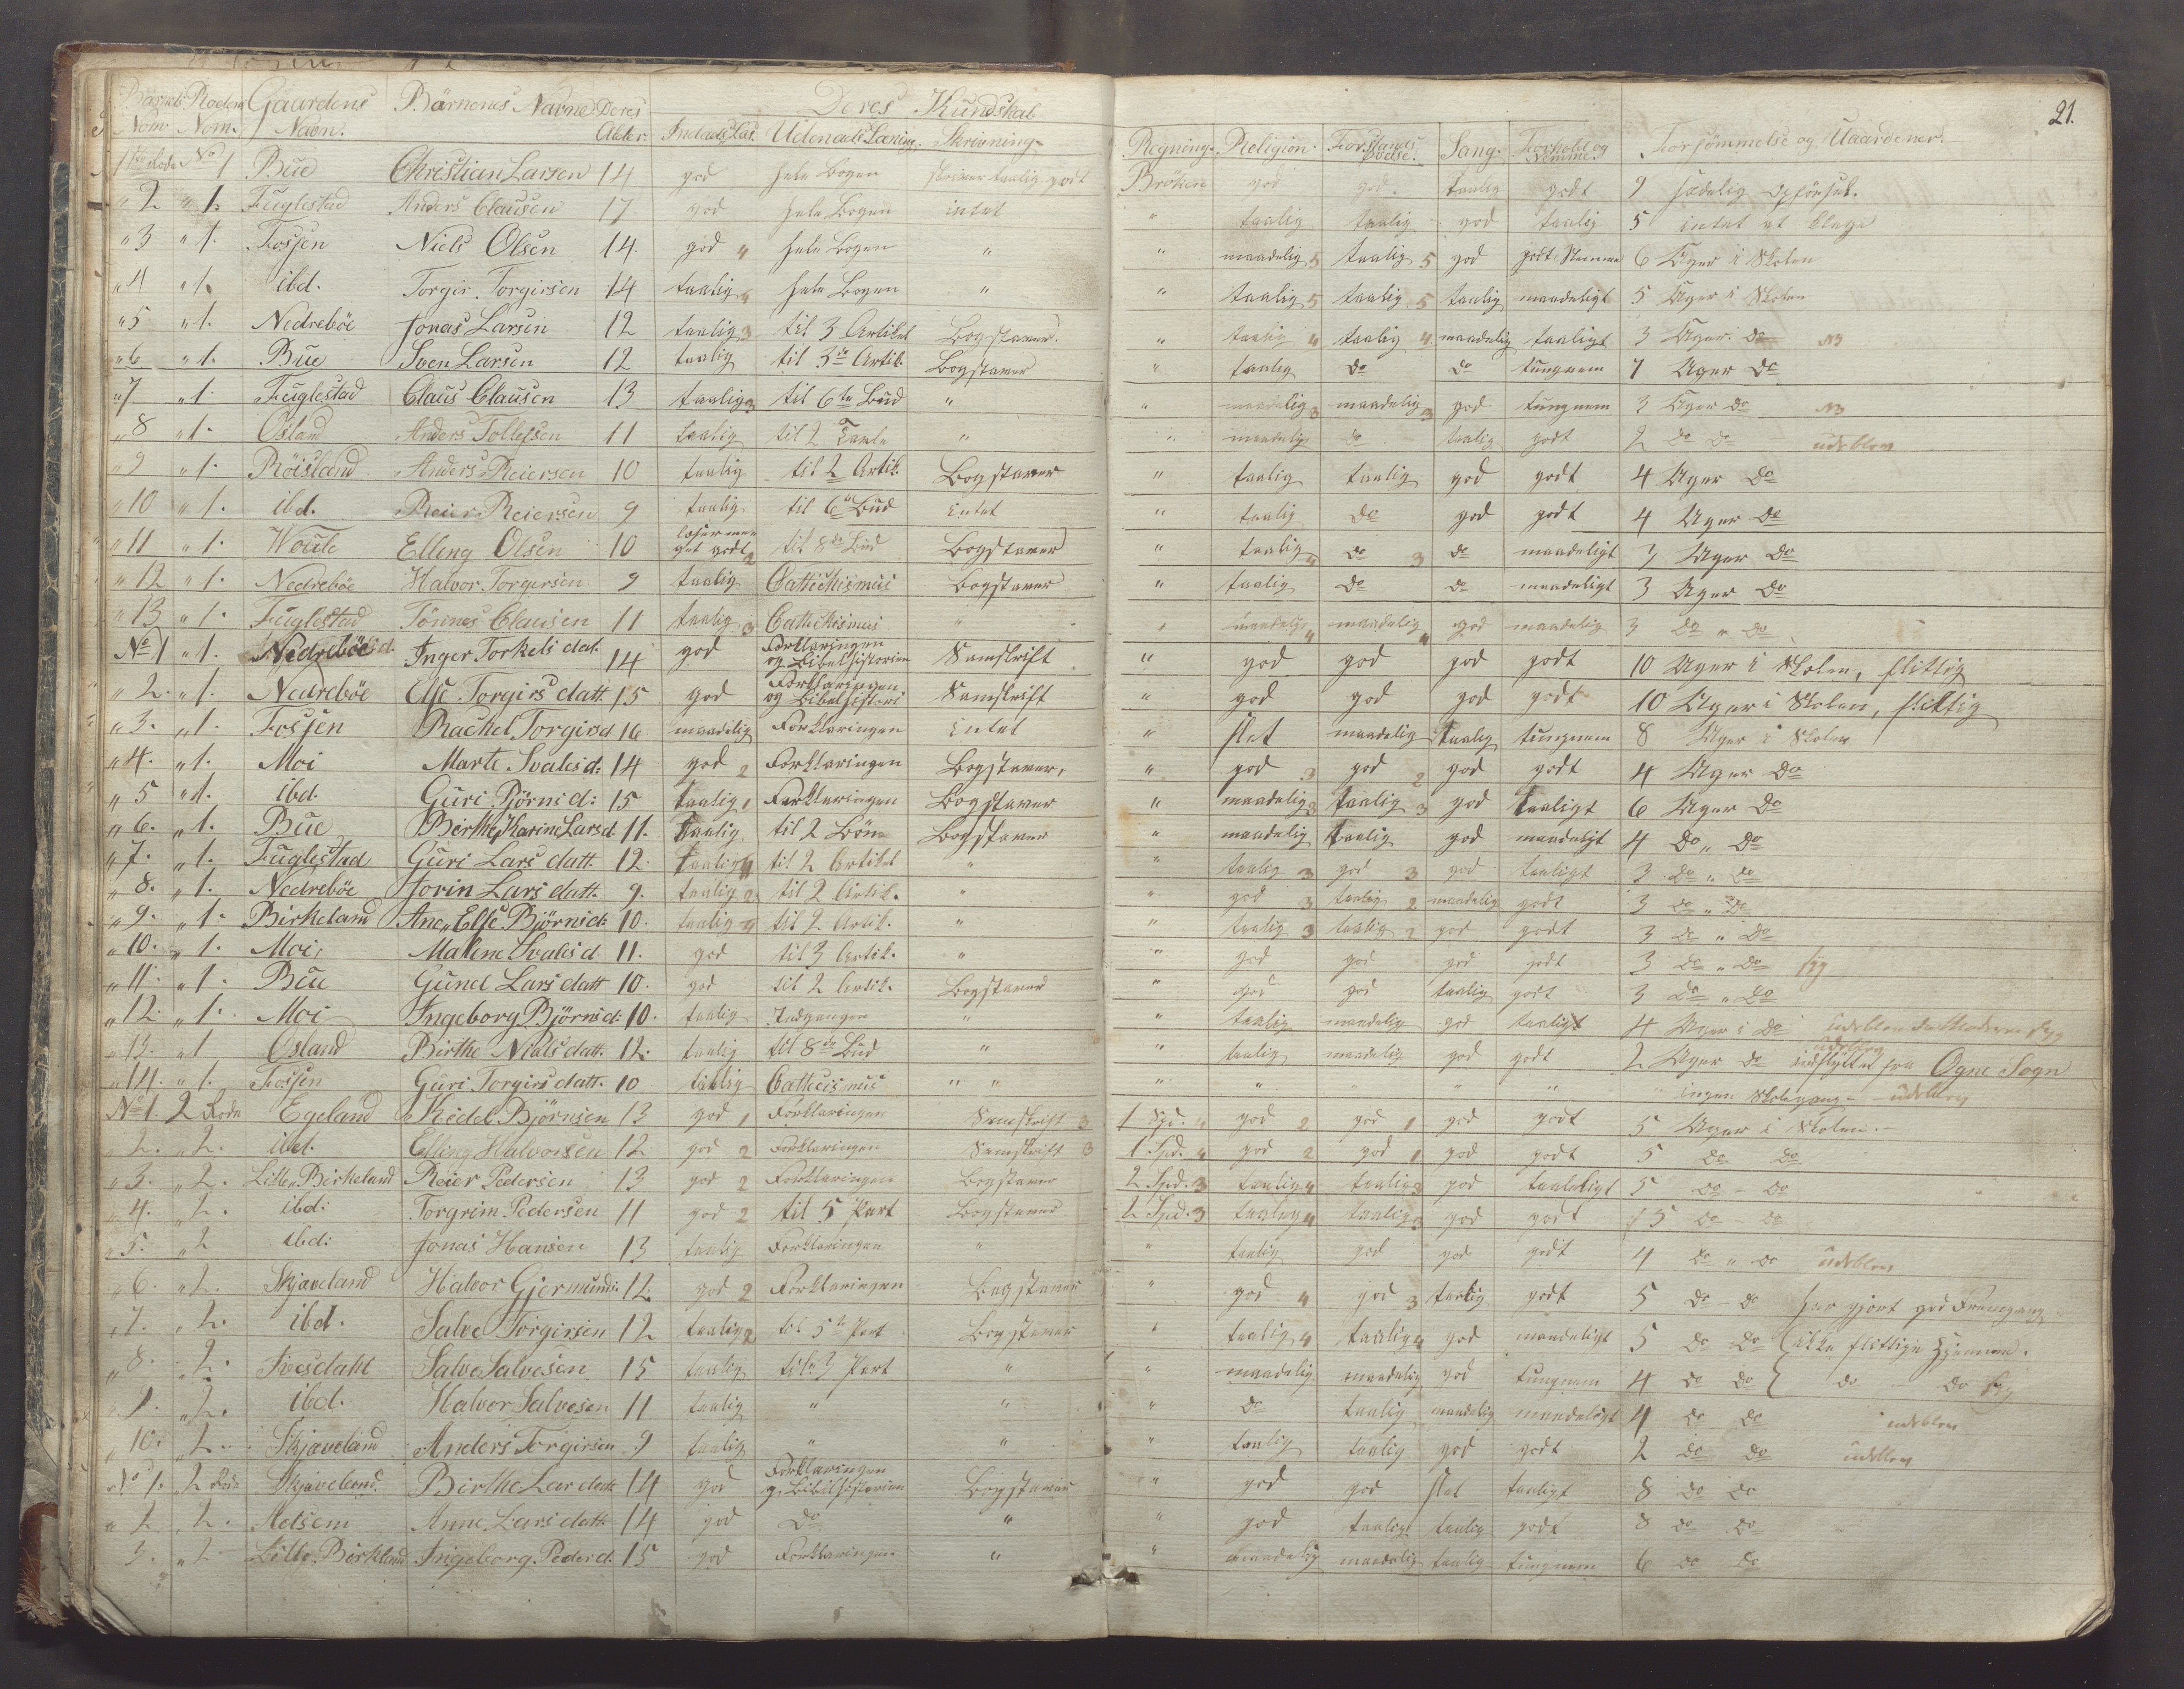 21.
Barnets Nom. Rodens Nom. Gaardens Navn. Børnenes Navne Deres Alder. Deres Kundskab Indads Læs. Udenads Læsning. Skrivning. Regning. Religion. Forstands Øvelse. Sang. Forhold og Nemme. Forsømmelse og
1 Rode No 1 Bue Christian Larsen 14 god hele Bogen skriver taalig godt Brøken god god taalig godt 9 sædelig Opførsel.
" 2 " 1. Fuglestad Anders Clausen 17 god hele Bogen intet " taalig taalig god taalig 5 intet at klage
" 3 " 1. Fossen Niels Olsen 14. god 4 hele Bogen " " maadelig 5 taalig 5 god godt Nemme 6 Uger i Skolen
" 4 " 1. ibd. Torgir Torgirsen 14 taalig 4 hele Bogen " " taalig 5 taalig 5 taalig maadeligt 5 Uger i Skolen
" 5 " 1. Nedrebøe Jonas Larsen 12 taalig 3 til 3 Artikel Bogstaver. " taalig 4 taalig 4 maadelig taaligt 3 Uger do
" 6 " 1. Bue Sven Larsen 12 taalig til 3de Artik. Bogstaver " taalig do do tungnem 7 Uger do
" 7 " 1. Fuglestad Claus Clausen 13 taalig 3 til 6te Bud " " maadelig 3 maadelig 3 god tungnem 3 Uger do
" 8 " 1. Osland Anders Tollefsen 11 taalig til 2 Tavle " " maadelig do taalig godt 2 do do udeblev
" 9 " 1. Røisland Anders Reiersen 10 taalig til 2 Artik. Bogstaver " taalig taalig god godt 4 Uger do
" 10 " 1. ibd. Reier Reiersen 9 taalig til 6te Bud intet " taalig do god godt 4 Uger do
" 11 " 1. Elling Olsen 10 læser meget godt 2 til 8de Bud Bogstaver " taalig 4 do 3 do maadeligt 3 Uger do
" 12 " 1. Nedrebøe Halvor Torgirsen 9 taalig Cathechismus Bogstaver " taalig do do maadeligt 3 Uger do
" 13 " 1. Fuglestad Tønnes Clausen 11 taalig 3 Cathekismus " " maadelig 4 maadelig 4 god maadelig 3 do " do
No 1 " 1. Nedrebøe Inger Torkels dat. 14 god Forklaringen og Bibelhistorien Samskrift " god god god godt 10 Uger i Skolen, flittig
" 2. " 1. Nedrebøe Else Torgirs datt. 15 god Forklaringen og Bibelhistori Samskrift " god god god godt 10 Uger i Skolen, flittig
" 3. " 1. Fossen Rachel Torgirsd 16 maadelig Forklaringen intet " slet maadelig taalig tungnem 8 Uger i Skolen
" 4. " 1. Moi Marte Svales d: 14 god 2 Forklaringen Bogstaver, " god 3 god 2 god godt 4 Uger do
" 5 " 1. ibd. Guri Bjørns d: 15 taalig 1 Forklaringen Bogstaver " maadelig 3 taalig 3 god taaligt 6 Uger do
" 6. " 1. Bue Birthe Karine Larsd 11. taalig. til 2 Bøn Bogstaver " maadelig taalig god maadeligt 4 do " do
" 7. " 1. Fuglestad Guri Lars datt. 12. taalig 4 til 2 Artikel " " taalig 3 god 3 god taaligt 3 do " do
" 8. " 1. Nedrebøe Jorin Lars datt. 9. taalig 2 til 2 Artik. " " god 3 taalig 2 maadelig godt 3 do " do
" 9. " 1. Birkeland Ane Else Bjørnsd: 10. taalig 4 til 2 Artik. " " taalig 3 taalig 2 god godt 3 do " do
" 10. " 1. Moi, Malene Svales d. 11. god til 3 Artik. " " god god god godt 3 do " do syg
" 11. " 1. Bue Guncl Lars datt 10. god til 2 Artik. Bogstaver " god god taalig godt 3 do " do
" 12. " 1. Moi Ingeborg Bjørnsd: 10. taalig Indgangen " " taalig maadelig god taaligt 4 Uger i do udeblev da Moderen syg
" 13. " 1 Osland Birthe Niels datt. 12. taalig til 8de Bud " " taalig maadelig god godt 2 Uger do indflyttet fra Ogne Sogn udeblev
" 14. " 1. Fossen Guri Torgirs datt. 10 taalig Cathecismus " " " " " " " " ingen Skolegang - udeblev
No 1. 2 Rode Egeland Kedel Bjørnsen 13 god 1 Forklaringen Samskrift 3 1 Spd. 4 god 2 god 1 god godt 5 Uger i Skolen.
" 2. " 2. ibd. Elling Halvorsen 12 god 2 Forklaringen Samskrift 3 1 Spd. 4 god 2 god 1 god godt 5 do do
" 3. " 2. Litle Birkeland Reier Pedersen 13 god 2 Forklaringen Bogstaver 2 Spd. 3 taalig 4 taalig 3 god taaleligt 5 do - do
" 4. " 2. ibd: Torgrim Pedersen 11 god 2 til 5 Part Bogstaver 2 Spd. 3 taalig 4 taalig 3 god godt 5 do - do
" 5. " 2 ibd: Jonas Hansen 13 taalig Forklaringen " " taalig god god godt 4 do " do udeblev
" 6. " 2. Skjæveland Halvor Gjermunds. 12. god 2 Forklaringen Bogstaver " god 4 god 3 taalig godt 5 do - do har gjort god Fremgang
" 7. " 2. ibd. Salve Torgirsen 12 taalig 2 til 5te Part Bogstaver " taalig 4 taalig 4 god maadeligt 5 do do ikke flittige hjemme.
" 8. " 2. Salve Salvesen 15 taalig til 3 Part " " maadelig maadelig god tungnem 4 do do do - do syg
" 9. " 2. ibd. Halvor Salvesen 11 taalig " " " do taalig maadelig maadeligt 4 do do udeblev
" 10. " 2. Skjæveland Anders Torgirsen 9 taalig " " " taalig taalig god godt 2 do do udeblev
No 1. 2 Rode Skjæveland. Birthe Lars datt 14 god Forklaringen og Bibelhistorien Bogstaver " god god slet taaligt 8 do do
" 2 " 2. Anne Lars datt. 14 god do " " god taaligt taalig godt 8 do do
" 3. " 2 Litle Birkland Ingeborg Peder d. 15 god Forklaringen " " maadelig maadelig taalig tungnem 6 do do